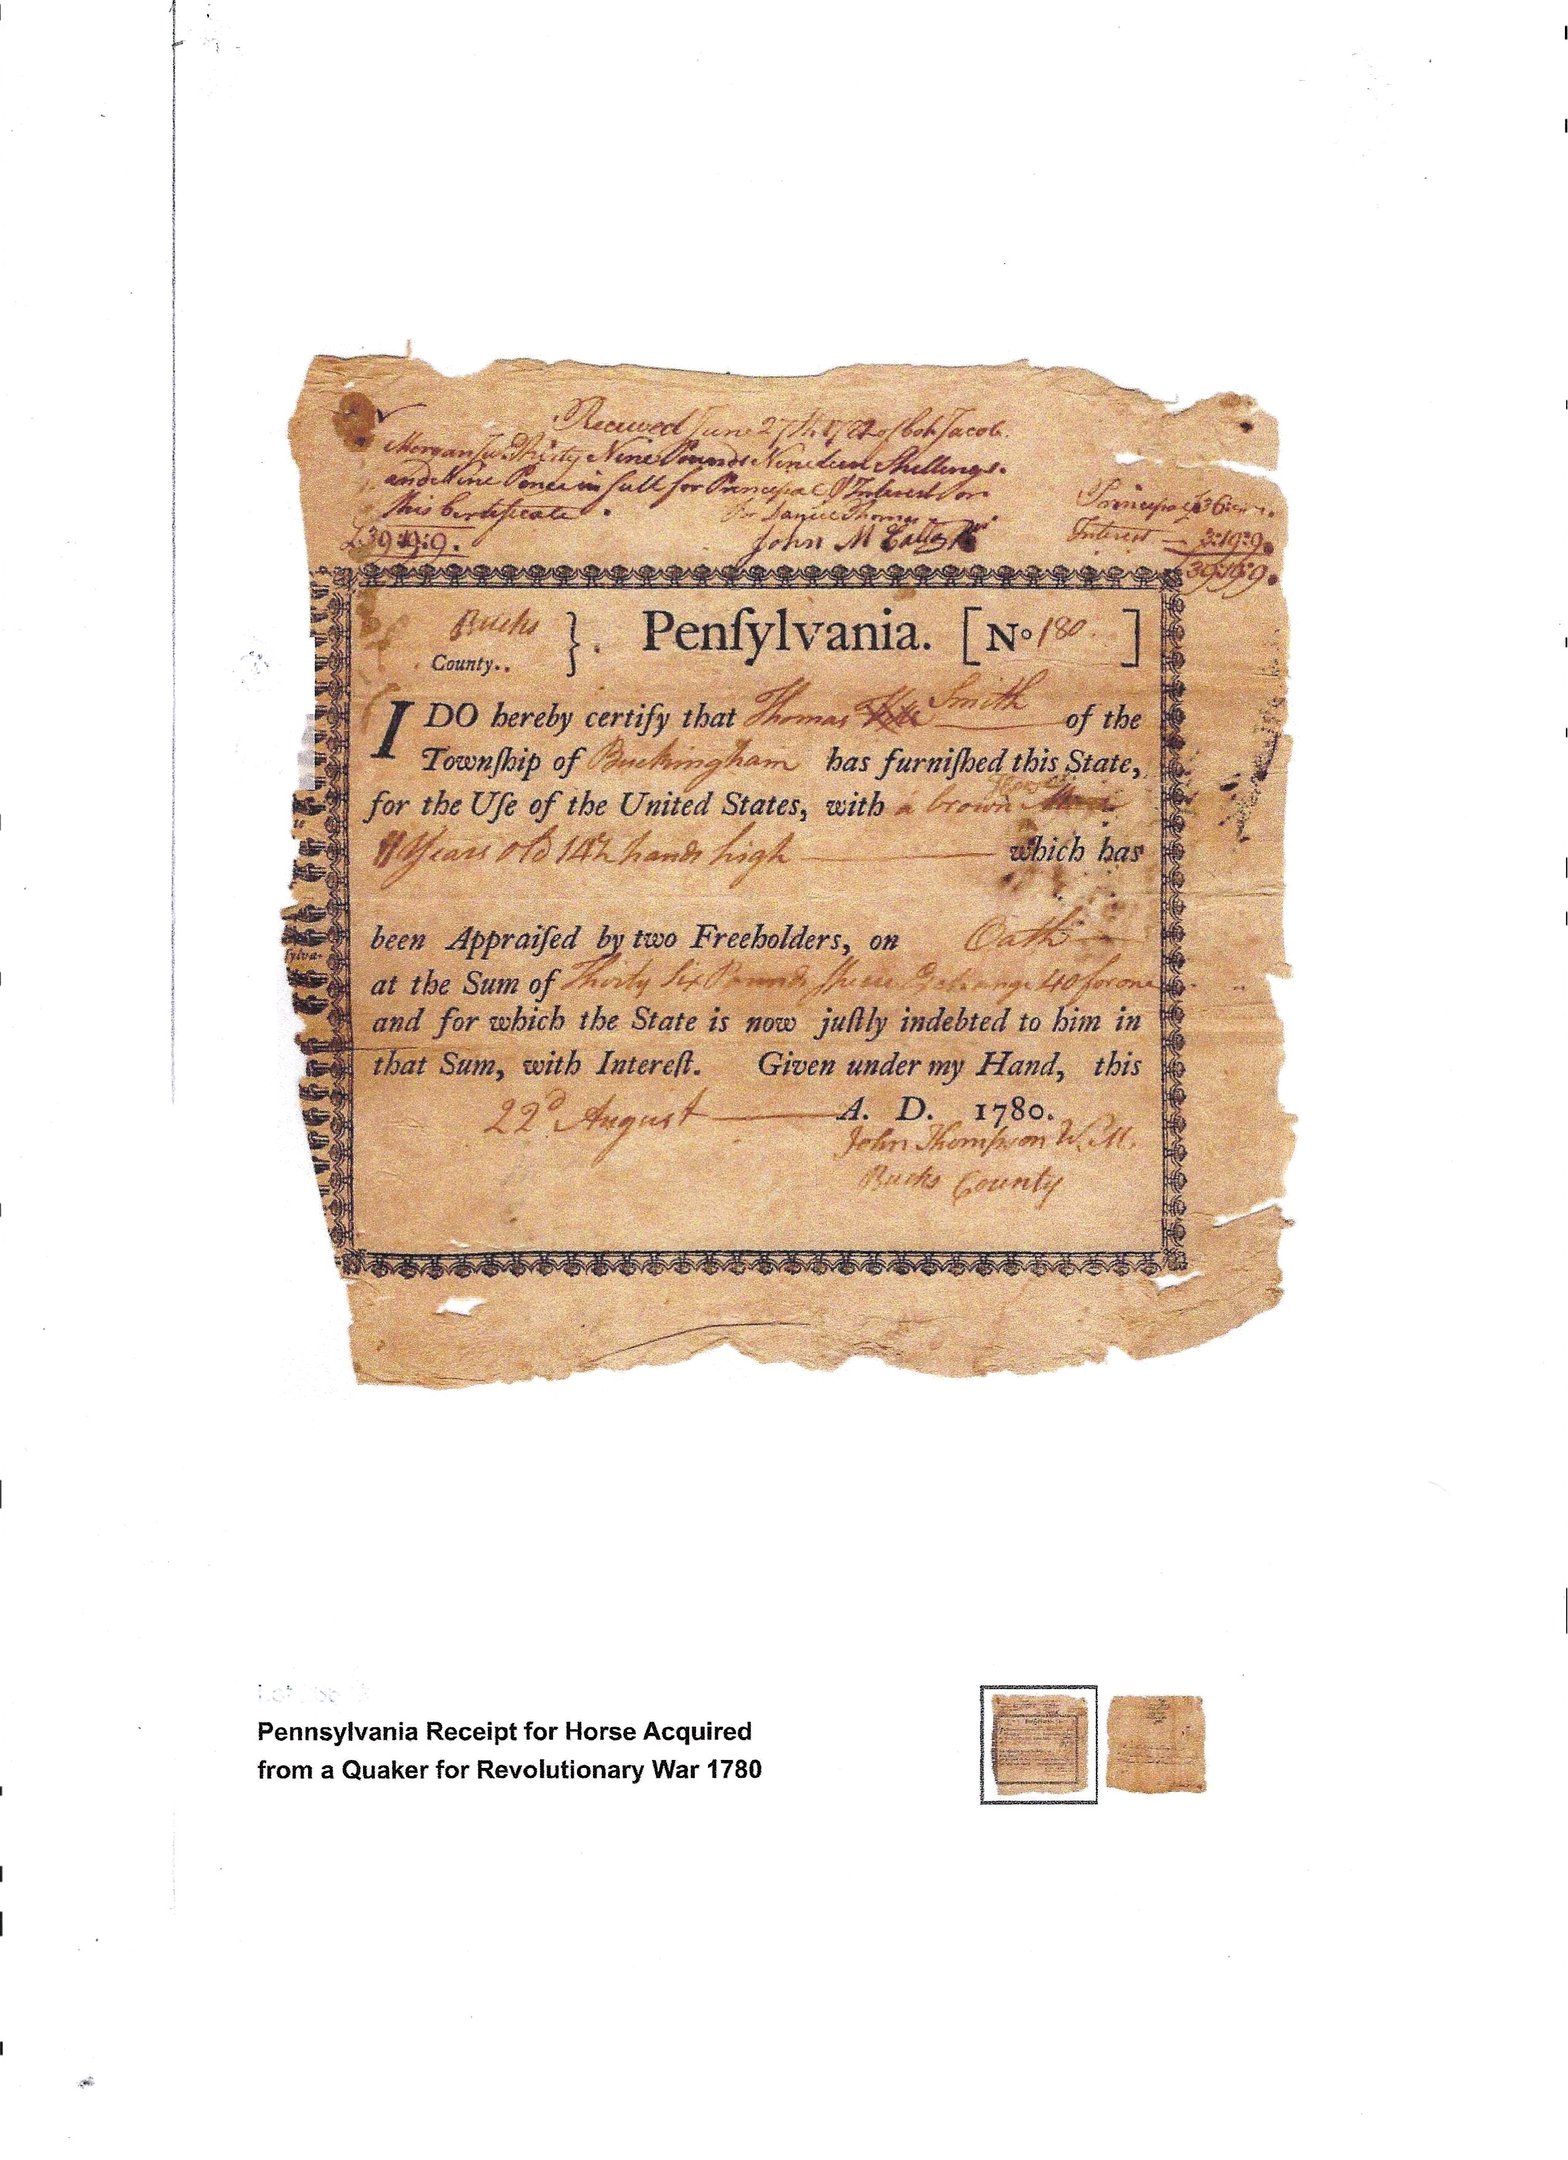 Received June 27th 17 of Col. Jacob
Morgan Junr. Thirty Nine Pounds Nineteen Shillings
and Nine Pence in full for Principal & Interest on
this Certificate. For Daniel Thomas
£39:19:9. John M
Principal £36:
Interest — 3:19:9.
£39:19:9.
Bucks
County..
}. Penſylvania. [No 180. ]
I DO hereby certify that Thomas Smith of the
Townſhip of Buckingham has furniſhed this State,
for the Uſe of the United States, with a brown Horse
Years old 14½ hands high which has
been Appraiſed by two Freeholders, on Oath
at the Sum of Thirty Six Pounds Specie Exchange 40 for one
and for which the State is now juſtly indebted to him in
that Sum, with Intereſt. Given under my Hand, this
22d August A. D. 1780.
John Thompson W. M.
Bucks County
Pennsylvania Receipt for Horse Acquired
from a Quaker for Revolutionary War 1780